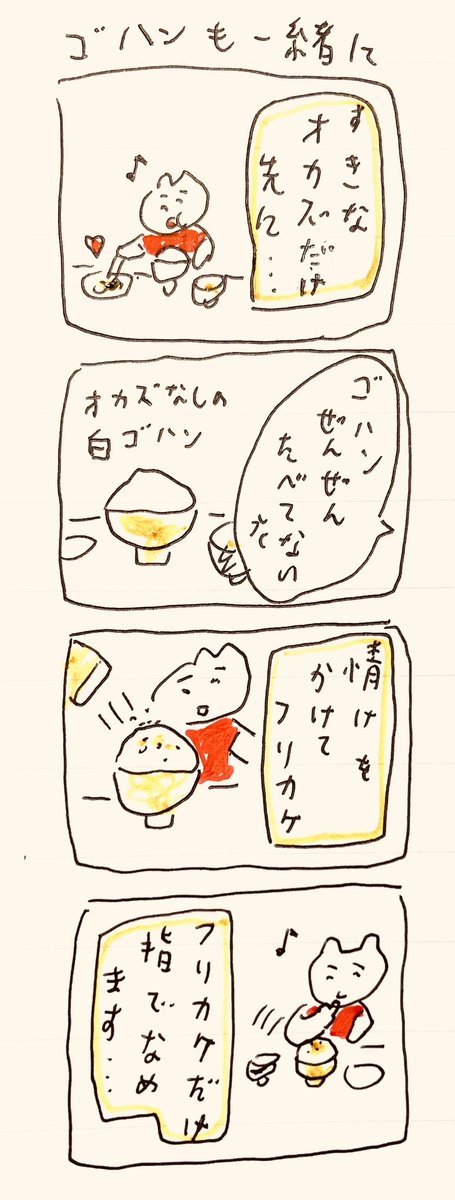 ゴハンも一緒に
すきな
オカズだけ
先に…
ゴハン
ぜんぜん
たべてない
オカズなしの
白ゴハン
情けを
かけて
フリカケ
フリカケだけ
指でなめ
ます…